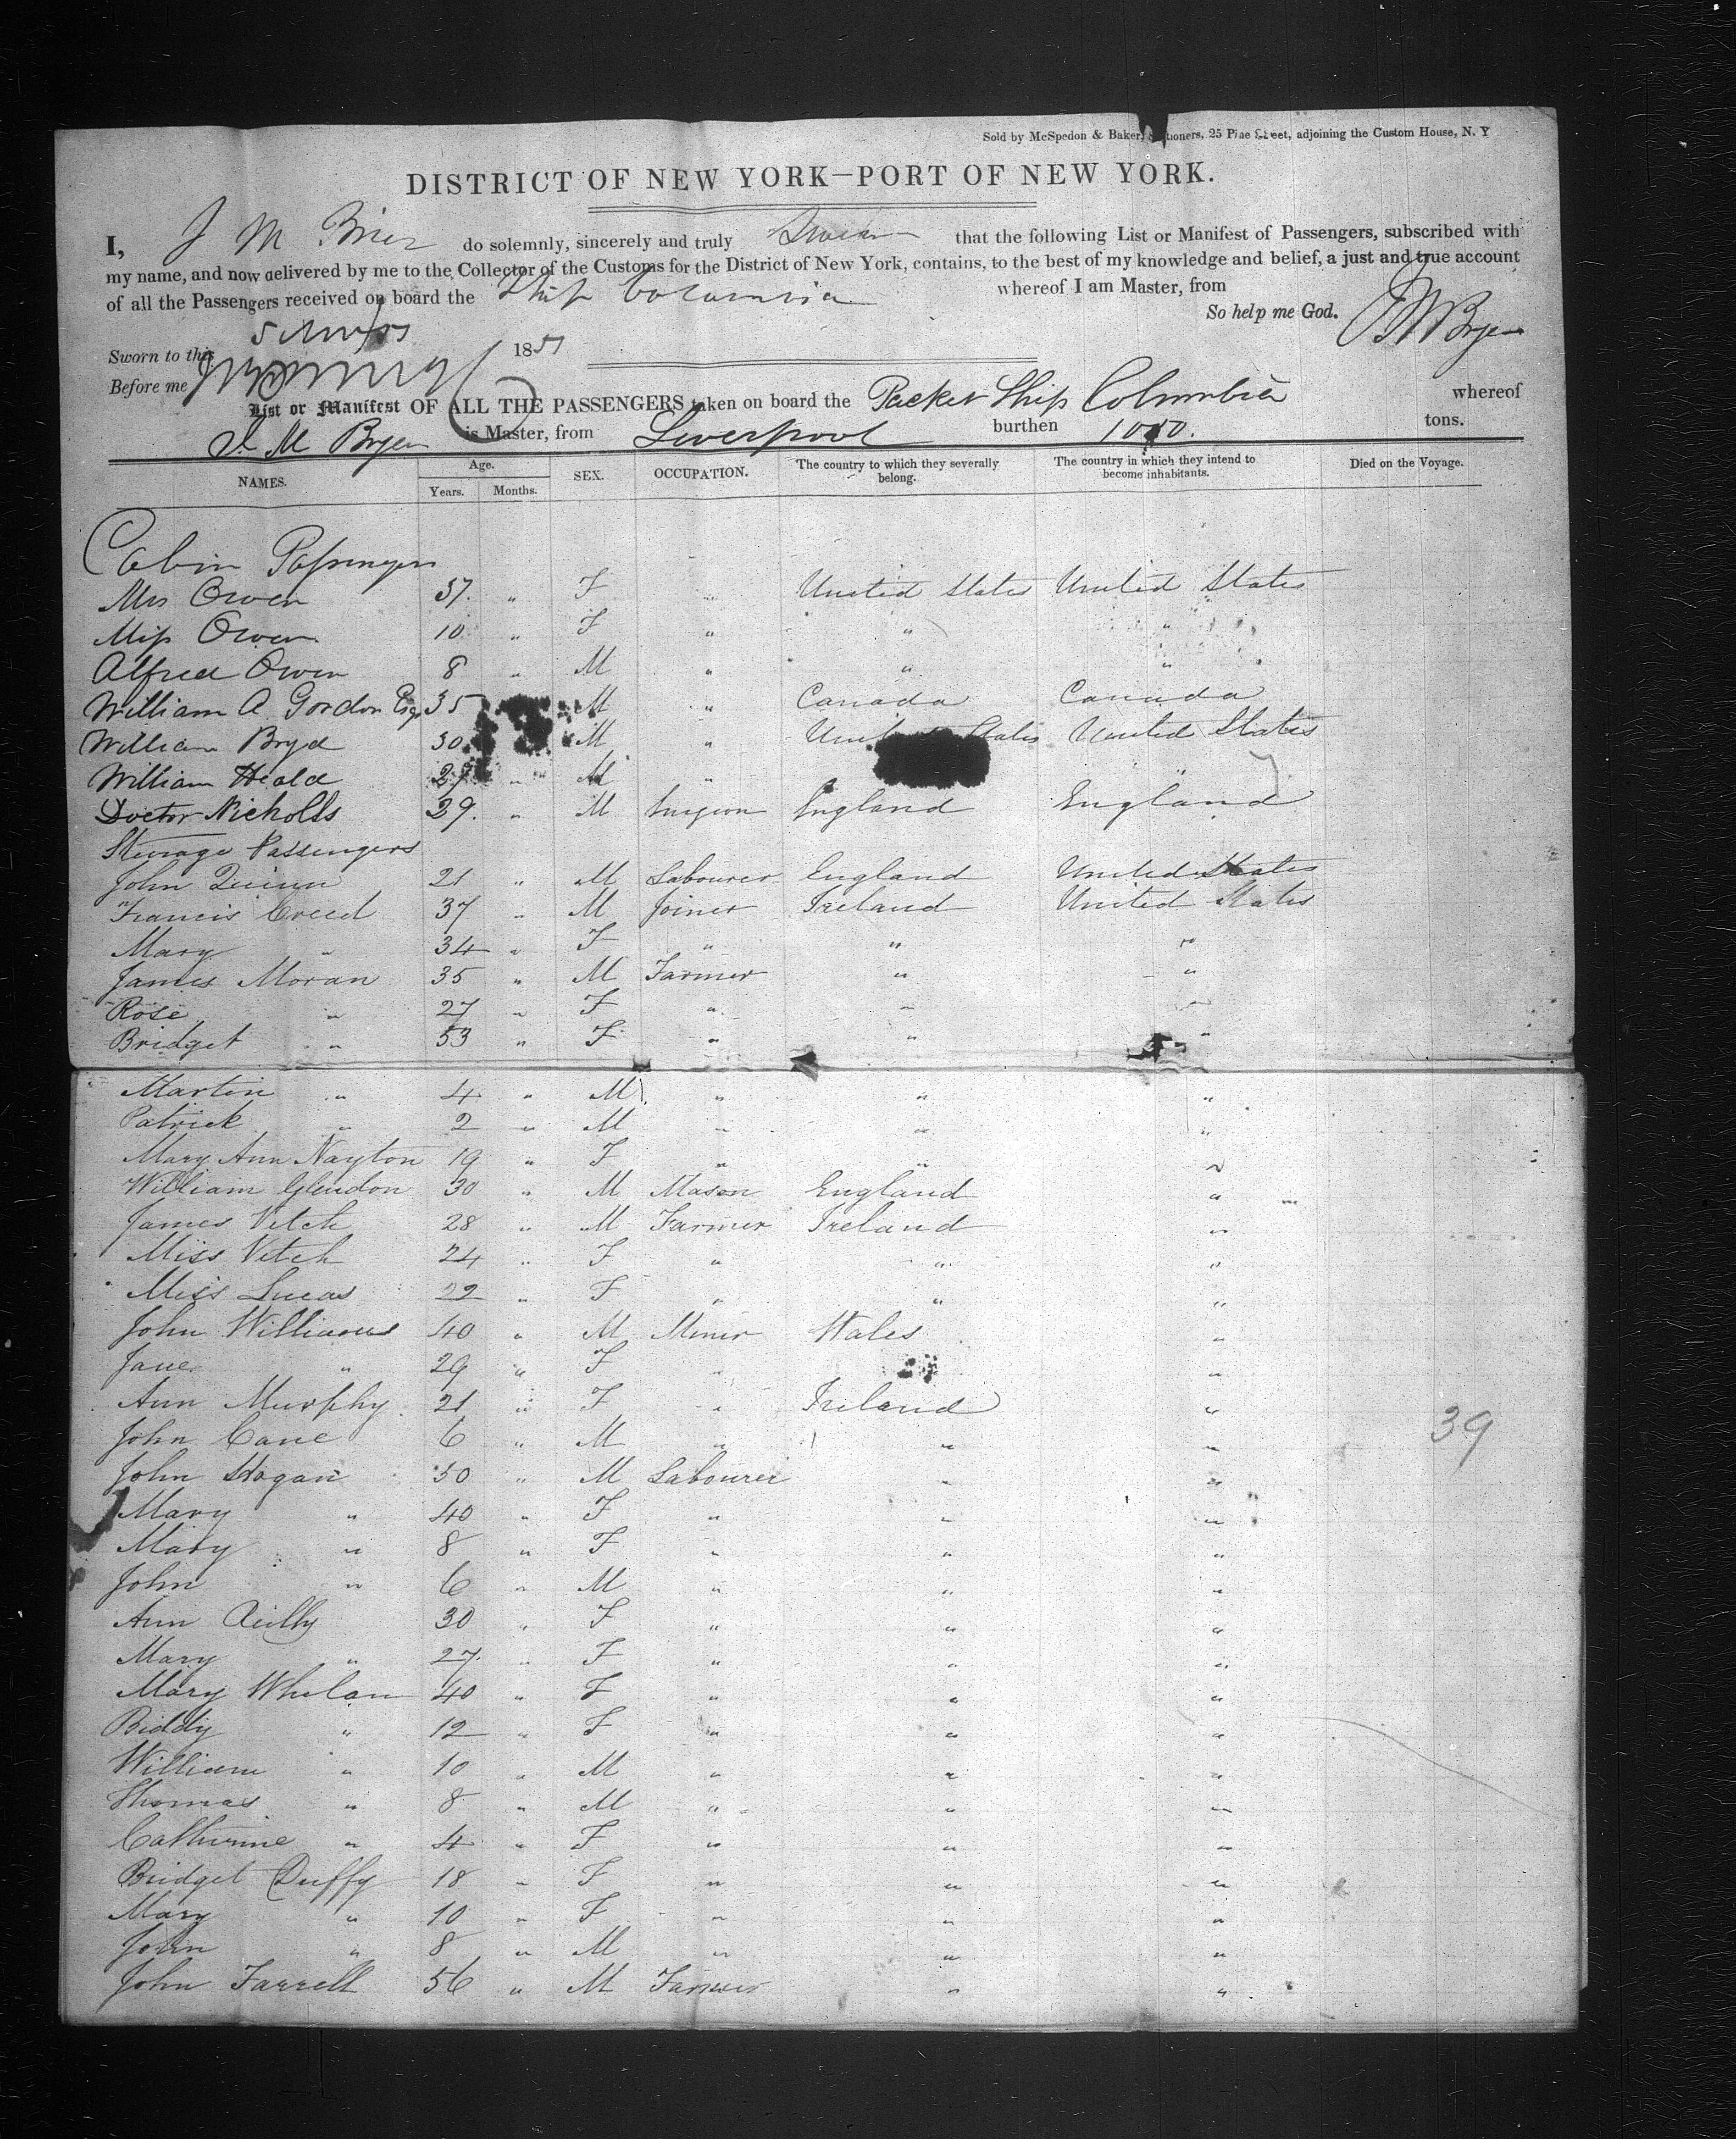 Sold by McSpedon & Baker, Stationers, 25 Pine Street, adjoining the Custom House, N. Y
DISTRICT OF NEW YORK—PORT OF NEW YORK.
I, J M do solemnly, sincerely and truly Swear that the following List or Manifest of Passengers, subscribed with
my name, and now delivered by me to the Collector of the Customs for the District of New York, contains, to the best of my knowledge and belief, a just and true account
of all the Passengers received on board the Ship Columbia whereof I am Master, from
So help me God. J M Bryer
Sworn to this 5 1851
Before me
List or Manifest OF ALL THE PASSENGERS taken on board the Packet Ship Columbia whereof
J. M Bryer is Master, from Liverpool burthen 1050. tons.
NAMES. Age. Years. Months. SEX. OCCUPATION. The country to which they severally belong. The country in which they intend to become inhabitants. Died on the Voyage.
Cabin Passengers
Mrs Owen 37. " F " United States United States
Miss Owen 10 " F " " "
Alfred Owen 8 " M " " "
William A. Gordon Esq 35 M " Canada Canada
William Bryd 30 M " United States United States
William Heald 27 " M " "
Doctor Nicholls 29. " M Surgeon England England
Steerage Passengers
John Quinn 21 " M Labourer England United States
Francis Creed 37 " M Joiner Ireland United States
Mary " 34 " F " " "
James Moran 35 " M Farmer " "
Rose " 27 " F " " "
Bridget " 53 " F " " "
Martin " 4 " M " " "
Patrick " 2 " M " " "
Mary Ann Nayton 19 " F " " "
William Glendon 30 " M Mason England "
James Vetch 28 " M Farmer Ireland "
Miss Vetch 24 " F " " "
Miss Lucas 22 " F " " "
John Williams 40 " M Miner Wales "
Jane " 29 " F " " "
Ann Murphy 21 " F " Ireland "
John Cane 6 " M " " "
39
John Hogan 50 " M Labourer " "
Mary " 40 " F " " "
Mary " 8 " F " " "
John " 6 " M " " "
Ann Reilly 30 " F " " "
Mary " 27 " F " " "
Mary Whelan 40 " F " " "
Biddy " 12 " F " " "
William " 10 " M " " "
Thomas " 8 " M " " "
Catherine " 4 " F " " "
Bridget Duffy 18 " F " " "
Mary " 10 " F " " "
John " 8 " M " " "
John Farrell 56 " M Farmer " "